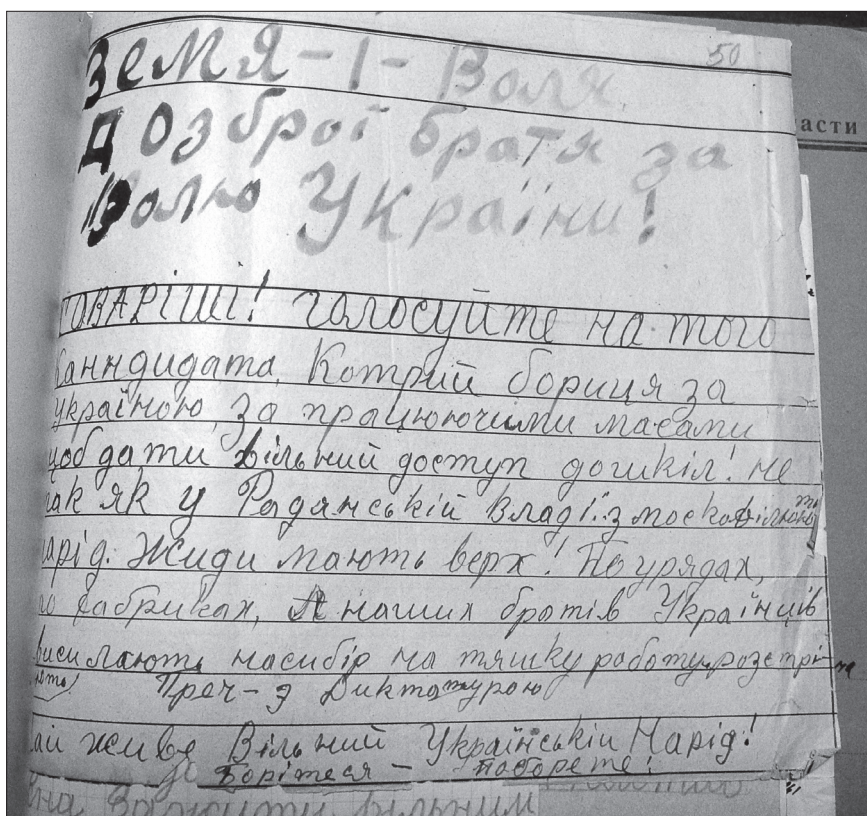 50
Земя - І - Воля
До зброї братя за
Волю України!
асти
ТОВАРІШІ! голосуйте на того
канндидата, Котрий бориця за
україною, за працюючими масами
щоб дати вільний доступ дошкіл! не
так як у Радянській владії: змоско
нарід. Жиди мають верх! По урядах,
по фабриках, А наших братів Українців
висилають насибір на тяшку работу розстрі-
Преч - з Диктатурою
Хай живе Вільний Українській Нарід!
Борітеся - поборете!
на зажити вільним